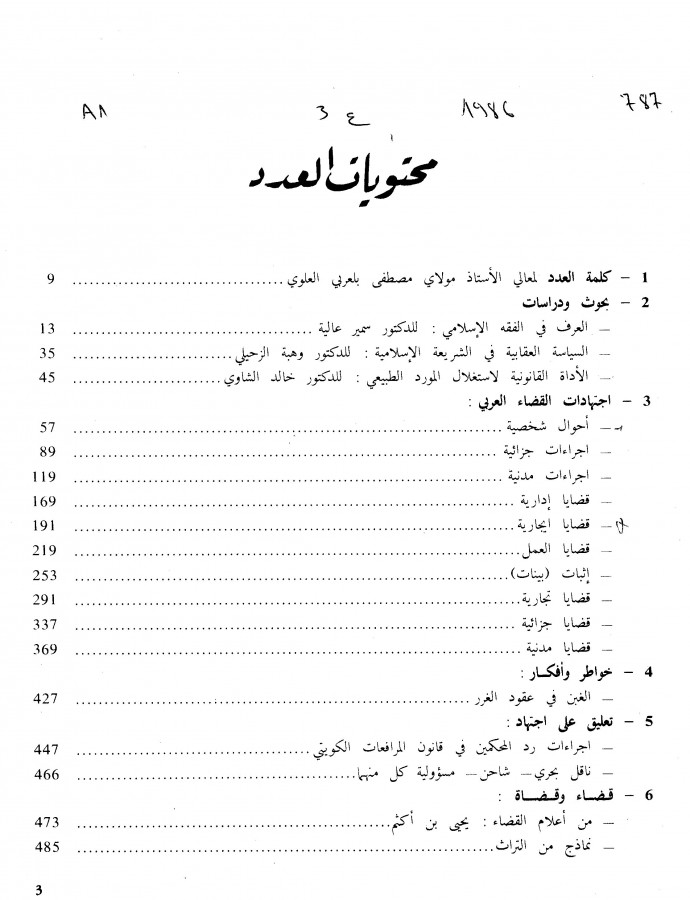 787 1986 ع 3
محتويات العدد
1 – كلمة العدد لمعالي الأستاذ مولاي مصطفى بلعربي العلوي ........ 9
2 – بحوث ودراسات
– العرف في الفقه الإسلامي : للدكتور سمير عالية ........ 13
– السياسة العقابية في الشريعة الإسلامية : للدكتور وهبة الزحيلي ........ 35
– الأداة القانونية لاستغلال المورد الطبيعي : للدكتور خالد الشاوي ........ 45
3 – اجتهادات القضاء العربي :
– أحوال شخصية ........ 57
– اجراءات جزائية ........ 89
– اجراءات مدنية ........ 119
– قضايا إدارية ........ 169
– قضايا ايجارية ........ 191
– قضايا العمل ........ 219
– إثبات (بينات) ........ 253
– قضايا تجارية ........ 291
– قضايا جزائية ........ 337
– قضايا مدنية ........ 369
4 – خواطر وأفكـار :
– الغبن في عقود الغرر ........ 427
5 – تعليق على اجتهاد :
– اجراءات رد المحكمين في قانون المرافعات الكويتي ........ 447
– ناقل بحري – شاحن – مسؤولية كل منهما ........ 466
6 – قـضـاء وقـضـاة :
– من أعلام القضاء : يحيى بن أكثم ........ 473
– نماذج من التراث ........ 485
3